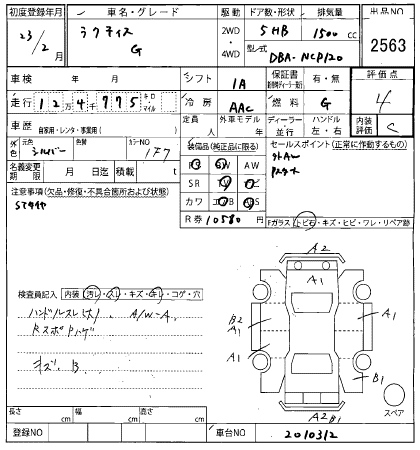 初度登録年月 車名・グレード 駆動 ドア数・形状 排気量 出品NO
23/2月 ラクティス G 2WD ・ 4WD 5HB 1500cc 2563
型式 DBA-NCP120
車検 年 月 シフト IA 保証書 有・無 評価点
走行 12万4千775 キロ・マイル 冷房 AAC 燃料 G 4
車歴 自家用・レンタ・事業用( ) 定員 人 外車モデル 年 ディーラー・並行 ハンドル 左・右 内装評価 C
外色 シルバー 色替 カラーNO 1F7 装備品(純正品に限る) セールスポイント(正常に作動するもの)
名義変更期限 月 日迄 積載 t
注意事項(欠品・修復・不具合箇所および状態)
SR
カワ
R券 10580 円
Fガラス トビ石・キズ・ヒビ・ワレ・リペア跡
検査員記入 内装(汚レ・スレ・キズ・キレ・コゲ・穴
ハンドルスレ(大)、A/W-A、
キズ B
A2
A1
B2
A1
A1
A1
B1
A2 B1
スペア
長さ cm 幅 cm 高さ cm
登録NO 車台NO 2010312